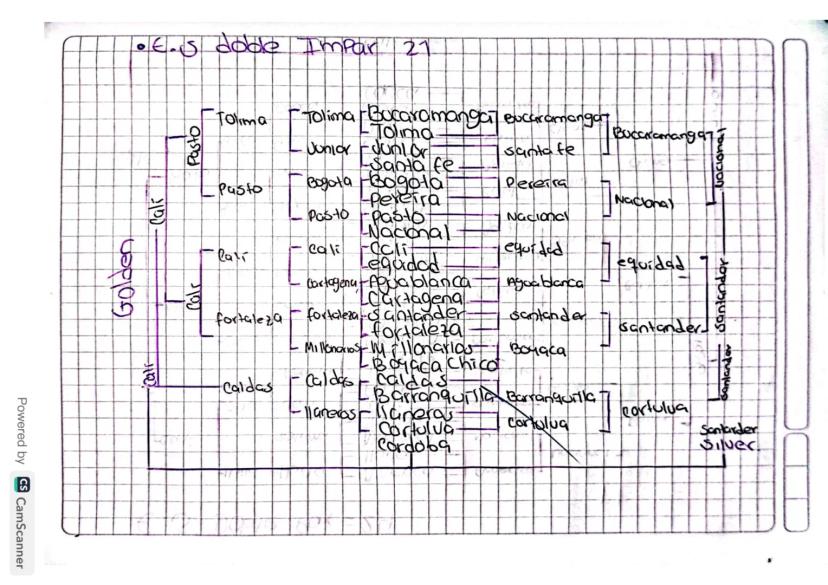 • E.S doble Impar 21
Golden
Cali
Cali
Pasto
Cali
Tolima
Pasto
Cali
fortaleza
Caldas
Tolima
Junior
Bogota
Pasto
Cali
Cartagena
fortaleza
Millonarios
Caldas
llaneros
Bucaramanga
Tolima
Junior
Santa fe
Bogota
Pereira
Pasto
Nacional
Cali
equidad
Aguablanca
Cartagena
Santander
fortaleza
Millonarios
Boyaca Chico
Caldas
Barranquilla
llaneros
Cortulua
Cordoba
Bucaramanga
santa fe
Pereira
Nacional
equidad
Aguablanca
santander
Boyaca
Barranquilla
cortulua
Bucaramanga
Nacional
equidad
santander
cortulua
Nacional
santandor
santander
Santander
Silver
Powered by CS CamScanner